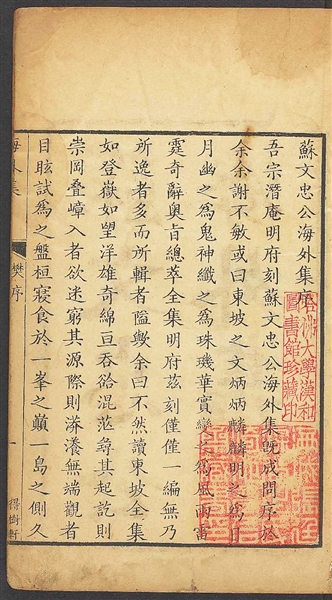 蘇文忠公海外集序
吾宗潛庵明府刻蘇文忠公海外集旣成問序於
余余謝不敏或曰東坡之文炳炳麟麟明之爲日
月幽之爲鬼神纖之爲珠璣華實變爲風雨雷
霆奇辭奧旨總萃全集明府茲刻僅僅一編無乃
所逸者多而所輯者隘與余曰不然讀東坡全集
如登嶽如望洋雄奇綿亘吞谽混茫尋其起訖則
崇岡疊嶂入者欲迷窮其源際則漭瀁無端觀者
目眩試爲之盤桓寢食於一峯之巔一島之側久
海外集
樊序
一
得樹軒
哈佛大學漢和
圖書館珍藏印